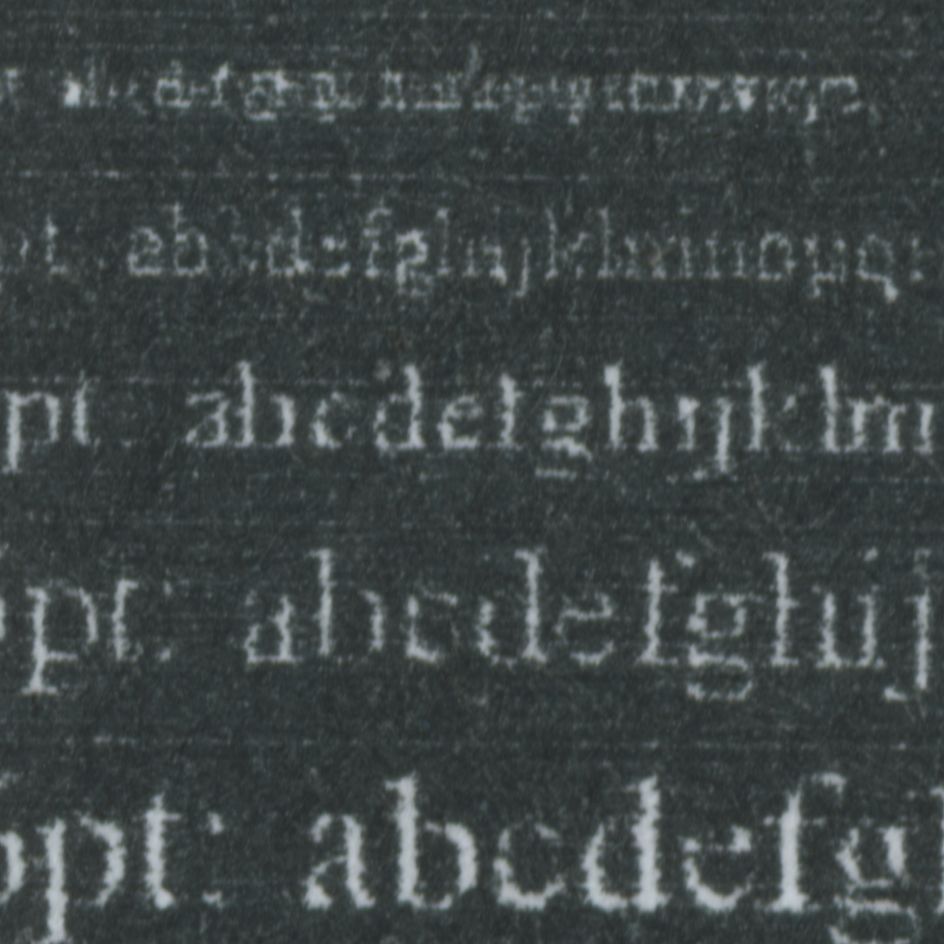 abcdefghijklmnopqrstuvwxyz
pt abcdefghijklmnopq
pt abcdefghijklm
pt: abcdefghij
pt: abcdefg